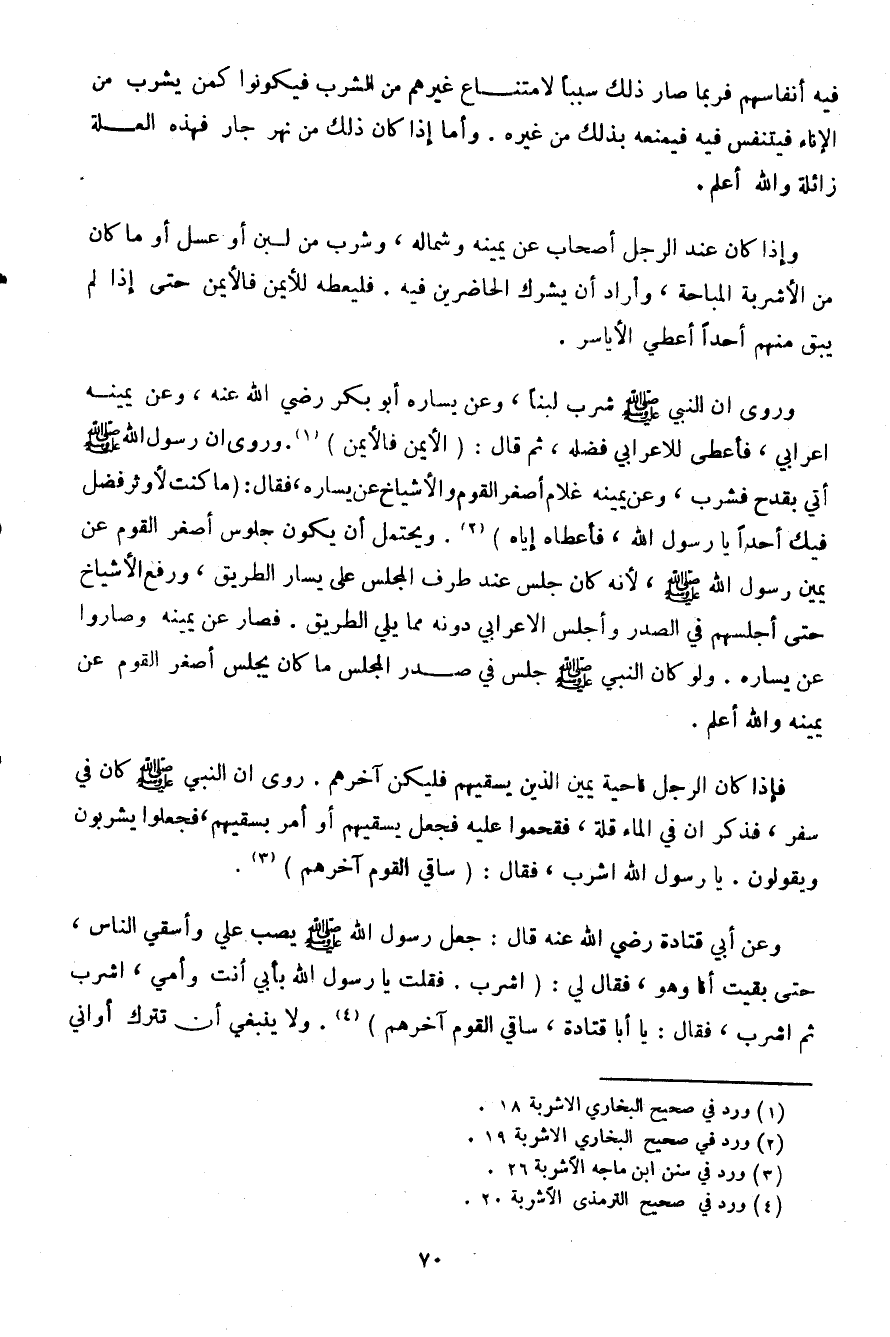 فيه أنفاسهم فربما صار ذلك سبباً لامتنـــاع غيرهم من الشرب فيكونوا كمن يشرب من
الإناء فيتنفس فيه فيمنعه بذلك من غيره . وأما إذا كان ذلك من نهر جار فهذه العــلة
زائلة والله أعلم .
وإذا كان عند الرجل أصحاب عن يمينه وشماله ، وشرب من لـبن أو عسل أو ما كان
من الأشربة المباحة ، وأراد أن يشرك الحاضرين فيه . فليعطه للأيمن فالأيمن حتى إذا لم
يبق منهم أحداً أعطي الأياسر .
وروى ان النبي ﷺ شرب لبناً ، وعن يساره أبو بكر رضي الله عنه ، وعن يمينــه
اعرابي ، فأعطى للاعرابي فضله ، ثم قال : ( الأيمن فالأيمن ) (١) . وروى ان رسول الله ﷺ
أتي بقدح فشرب ، وعن يمينه غلام أصغر القوم والأشياخ عن يساره ، فقال : ( ما كنت لأوثر فضل
فيك أحداً يا رسول الله ، فأعطاه إياه ) (٢) . ويحتمل أن يكون جلوس أصغر القوم عن
يمين رسول الله ﷺ ، لأنه كان جلس عند طرف المجلس على يسار الطريق ، ورفع الأشياخ
حتى أجلسهم في الصدر وأجلس الاعرابي دونه مما يلي الطريق . فصار عن يمينه وصاروا
عن يساره . ولو كان النبي ﷺ جلس في صــدر المجلس ما كان يجلس أصغر القوم عن
يمينه والله أعلم .
فإذا كان الرجل ناحية يمين الذين يسقيهم فليكن آخرهم . روى ان النبي ﷺ كان في
سفر ، فذكر ان في الماء قلة ، فقحموا عليه فجعل يسقيهم أو أمر بسقيهم ، فجعلوا يشربون
ويقولون . يا رسول الله اشرب ، فقال : ( ساقي القوم آخرهم ) (٣) .
وعن أبي قتادة رضي الله عنه قال : جعل رسول الله ﷺ يصب علي وأسقي الناس ،
حتى بقيت أنا وهو ، فقال لي : ( اشرب . فقلت يا رسول الله بأبي أنت وأمي ، اشرب
ثم اشرب ، فقال : يا أبا قتادة ، ساقي القوم آخرهم ) (٤) . ولا ينبغي أن تترك أواني
(١) ورد في صحيح البخاري الاشربة ١٨ .
(٢) ورد في صحيح البخاري الاشربة ١٩ .
(٣) ورد في سنن ابن ماجه الأشربة ٢٦ .
(٤) ورد في صحيح الترمذى الأشربة ٢٠ .
٧٠